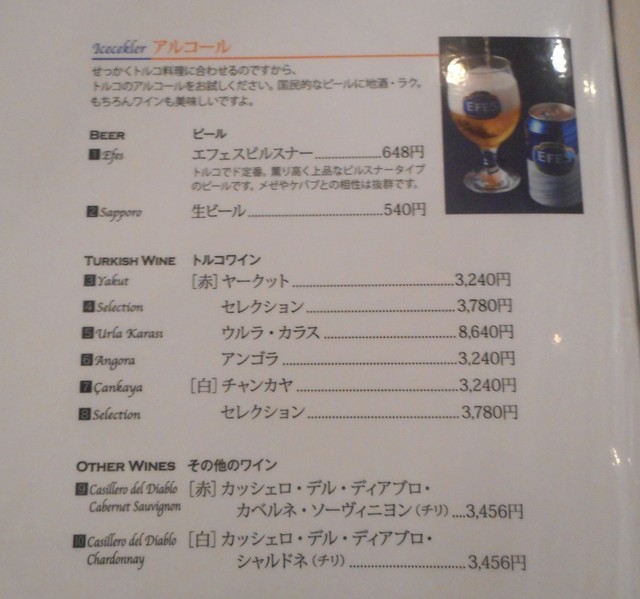 Icecekler アルコール
せっかくトルコ料理に合わせるのですから、
トルコのアルコールをお試しください。国民的なビールに地酒・ラク。
もちろんワインも美味しいですよ。
BEER ビール
1 Efes エフェスピルスナー 648円
トルコでド定番。薫り高く上品なピルスナータイプ
のビールです。メゼやケバブとの相性は抜群です。
2 Sapporo 生ビール 540円
EFES
EFES
TURKISH WINE トルコワイン
3 Yakut [赤] ヤークット 3,240円
4 Selection セレクション 3,780円
5 Urla Karası ウルラ・カラス 8,640円
6 Angora アンゴラ 3,240円
7 Çankaya [白] チャンカヤ 3,240円
8 Selection セレクション 3,780円
OTHER WINES その他のワイン
9 Casillero del Diablo [赤] カッシェロ・デル・ディアブロ・
Cabernet Sauvignon カベルネ・ソーヴィニヨン(チリ) 3,456円
10 Casillero del Diablo [白] カッシェロ・デル・ディアブロ・
Chardonnay シャルドネ(チリ) 3,456円